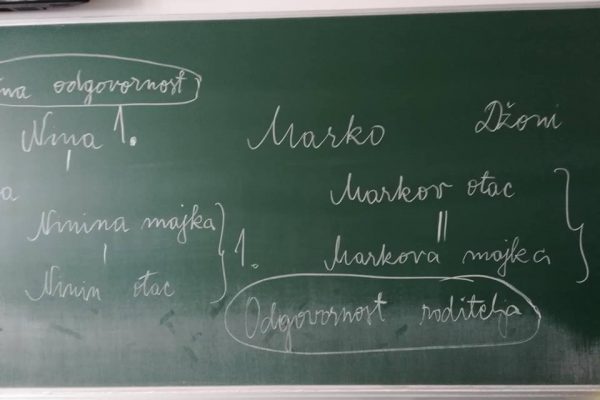 odgovornost
Nina 1. Marko Džoni
Markov otac
Ninina majka
1. Markova majka
Ninin otac
Odgovornost roditelja